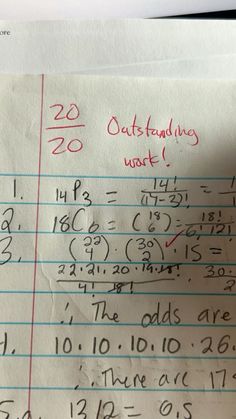 ore
20
20
Outstanding
work!
1. 14P3 = 14! / (14-3)! =
2. 18C6 = (18 6) = 18! / 6! 12!
3. (22 4) · (30 2) · 15 =
22·21·20·19·18! / 4! 18! · 30·
∴ The odds are
4. 10·10·10·10·26·
∴ There are 17
5.a. 13/2 = 0.5